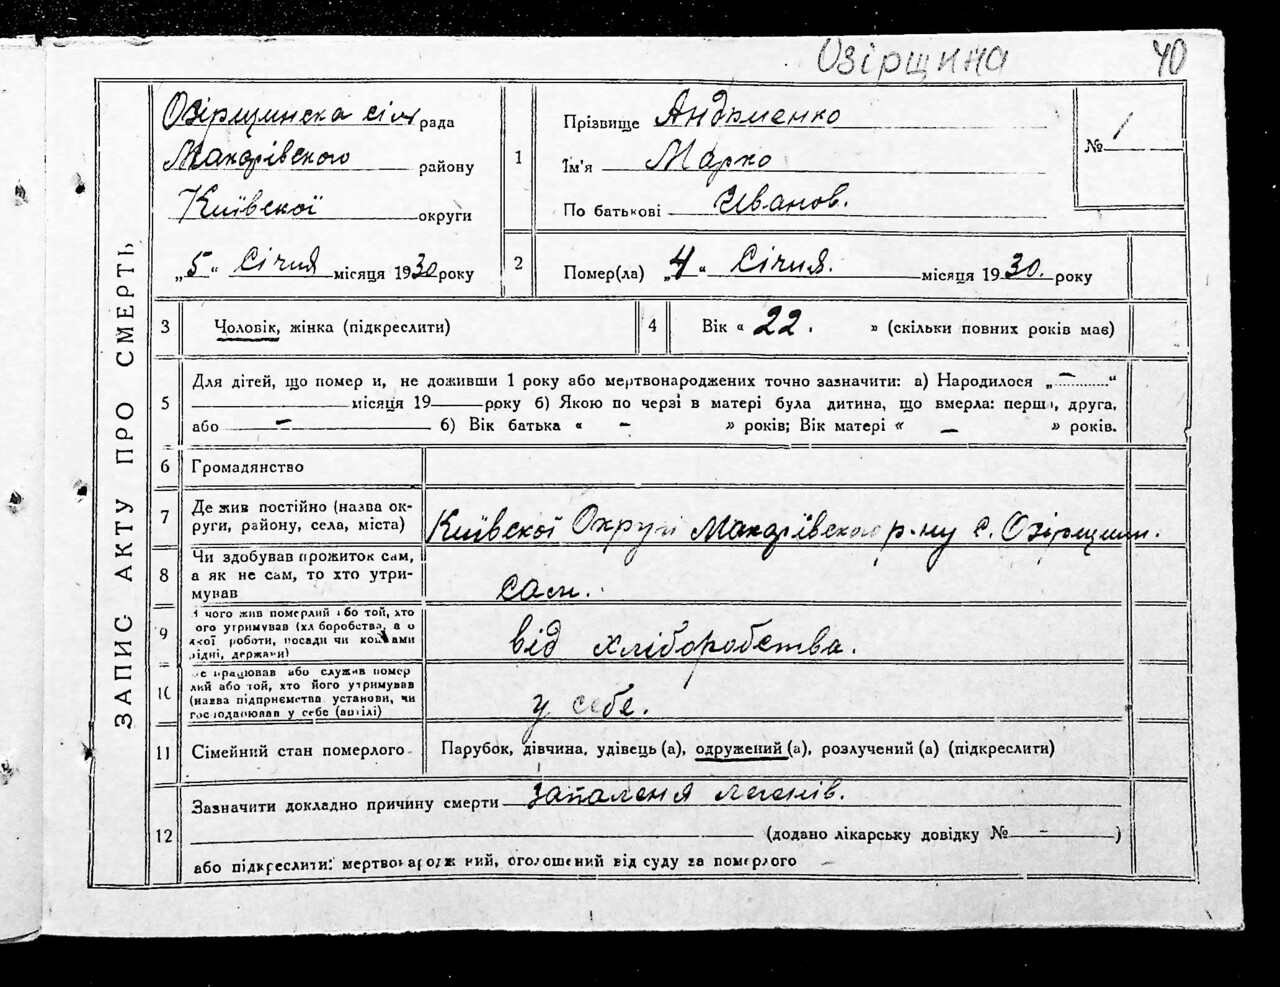 Озірщина 40
ЗАПИС АКТУ ПРО СМЕРТЬ
Озірщинска сіл рада
Макарівского району
Київскої округи
„5“ Січня місяця 1930 року
1 Прізвище
Ім'я Марко
По батькові Иванов.
№ 1
2 Помер(ла) „4“ Січня. місяця 1930. року
3 Чоловік, жінка (підкреслити)
4 Вік « 22. » (скільки повних років має)
5 Для дітей, що помер и, не доживши 1 року або мертвонароджених точно зазначити: а) Народилося „—“
місяця 19 року б) Якою по черзі в матері була дитина, що вмерла: перша, друга,
або — б) Вік батька « — » років; Вік матері « — » років.
6 Громадянство
7 Де жив постійно (назва ок-
руги, району, села, міста)
Київскої Округи Макарівского р-ну с. Озірщини.
8 Чи здобував прожиток сам,
а як не сам, то хто утри-
мував
сам.
9 чого жив померлий або той, хто
ого утримував (хліборобства, а о
кої роботи, посади чи коштами
рідні, держави)
від хліборобства.
10 е працював або служив помер
лий або той, хто його утримував
(назва підприємства установи, чи
господарював у себе (вдома)
у себе.
11 Сімейний стан померлого
Парубок, дівчина, удівець (а), одружений (а), розлучений (а) (підкреслити)
12 Зазначити докладно причину смерти запаленя легенів.
(додано лікарську довідку № — )
або підкреслити: мертвонароджений, оголошений від суду за померлого —